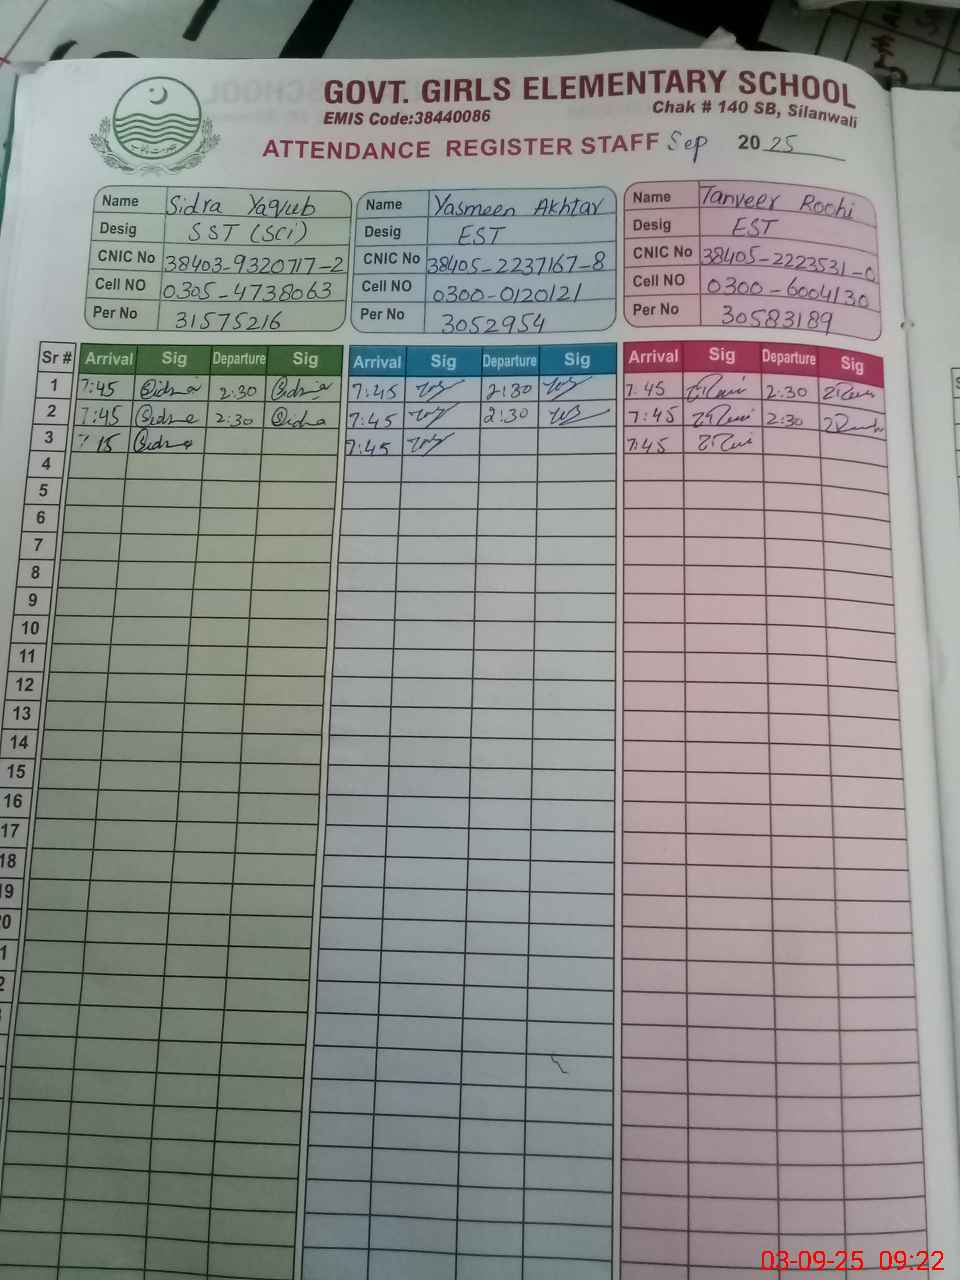 GOVT. GIRLS ELEMENTARY SCHOOL
EMIS Code:38440086 Chak # 140 SB, Silanwali
ATTENDANCE REGISTER STAFF Sep 2025
Name Sidra Yaqub Name Yasmeen Akhtar Name Tanveer Roohi
Desig SST (Sci) Desig EST Desig EST
CNIC No 38403-9320717-2 CNIC No 38405-2237167-8 CNIC No 38405-2223531-0
Cell NO 0305-4738063 Cell NO 0300-0120121 Cell NO 0300-6004130
Per No 31575216 Per No 3052954 Per No 30583189
Sr # Arrival Sig Departure Sig Arrival Sig Departure Sig Arrival Sig Departure Sig
1 7:45 Sidra 2:30 Sidra 7:45 2:30 7:45 2:30
2 7:45 Sidra 2:30 Sidra 7:45 2:30 7:45 2:30
3 Sidra 7:45 7:45
4
5
6
7
8
9
10
11
12
13
14
15
16
17
18
19
20
03-09-25 09:22